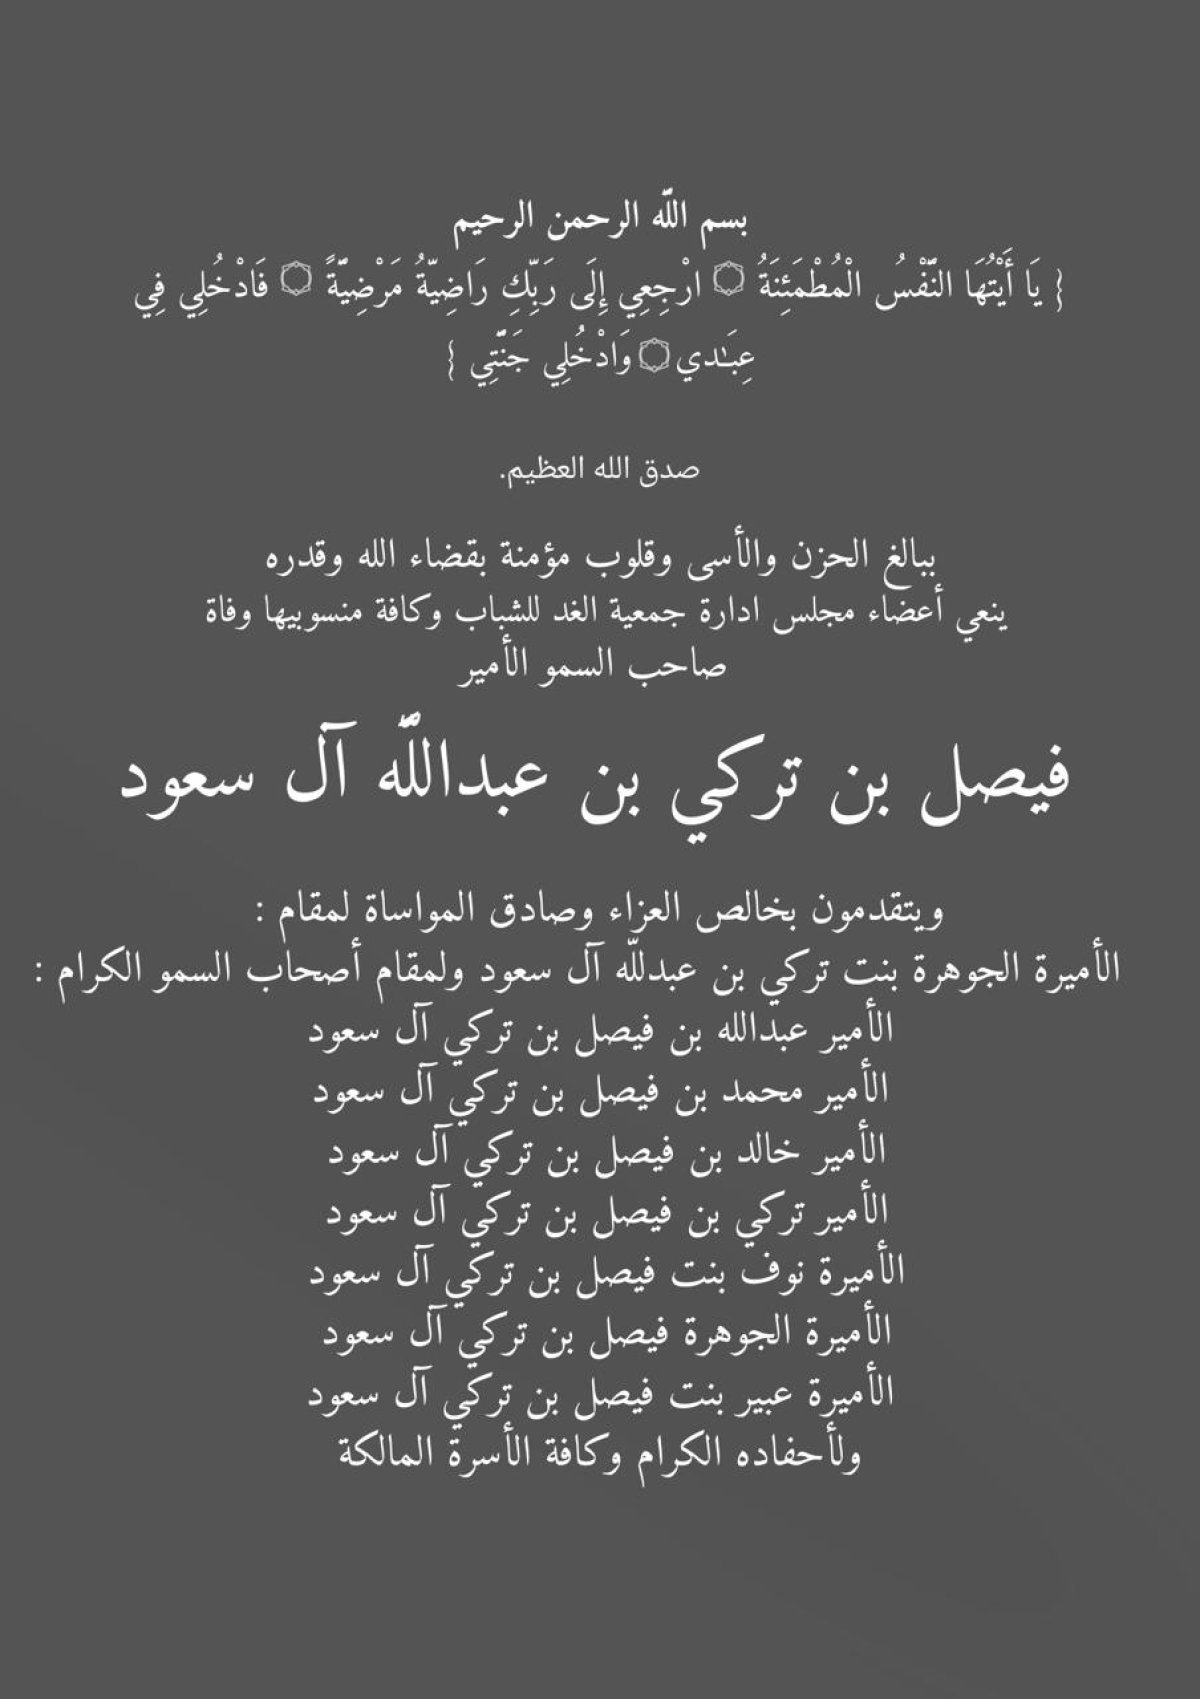 بسم اللّه الرحمن الرحيم
{ يَا أَيَّتُهَا النَّفْسُ الْمُطْمَئِنَةُ ۝ ارْجِعِي إِلَى رَبِّكِ رَاضِيَّةُ مَرْضِيَّةً ۝ فَادْخُلِي فِي
عِبَـٰدي۝ وَادْخُلِي جَنَّتِي }
صدق الله العظيم.
ببالغ الحزن والأسى وقلوب مؤمنة بقضاء الله وقدره
ينعي أعضاء مجلس ادارة جمعية الغد للشباب وكافة منسوبيها وفاة
صاحب السمو الأمير
فيصل بن تركي بن عبداللّه آل سعود
ويتقدمون بخالص العزاء وصادق المواساة لمقام :
الأميرة الجوهرة بنت تركي بن عبدللّه آل سعود ولمقام أصحاب السمو الكرام :
الأمير عبدالله بن فيصل بن تركي آل سعود
الأمير محمد بن فيصل بن تركي آل سعود
الأمير خالد بن فيصل بن تركي آل سعود
الأمير تركي بن فيصل بن تركي آل سعود
الأميرة نوف بنت فيصل بن تركي آل سعود
الأميرة الجوهرة فيصل بن تركي آل سعود
الأميرة عبير بنت فيصل بن تركي آل سعود
ولأحفاده الكرام وكافة الأسرة المالكة